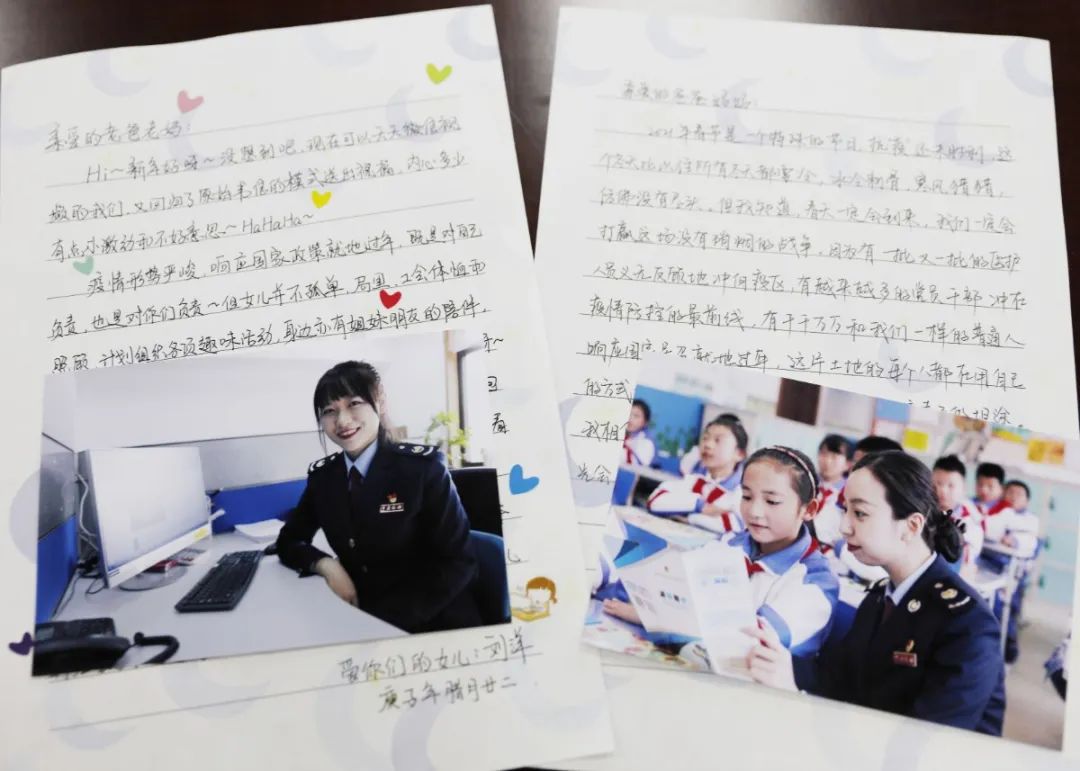 亲爱的老爸老妈：
Hi～新年好呀～没想到吧，现在可以天天微信视
频的我们，又回归了原始来信的模式送出祝福，内心多少
有点小激动和不好意思～HaHaHa～
疫情形势严峻，响应国家政策就地过年，既是对自己
负责，也是对你们负责～但女儿并不孤单，局里，工会体恤和
照顾，计划组织各项趣味活动，身边亦有姐妹朋友的陪伴，
来～
回
看
儿
爱你们的女儿：刘洋
庚子年腊月廿二
亲爱的爸爸妈妈：
2021年春节是一个特殊的节日，抗疫还未胜利，这
个冬天比以往所有冬天都要冷，冰冷刺骨，寒风猎猎，
仿佛没有尽头。但我知道，春天一定会到来，我们一定会
打赢这场没有硝烟的战争，因为有一批又一批的医护
人员义无反顾地冲向疫区，有越来越多的党员干部冲在
疫情防控的最前线，有千千万万和我们一样的普通人
响应国家号召就地过年，这片土地的每个人都在用自己
的方式
我相